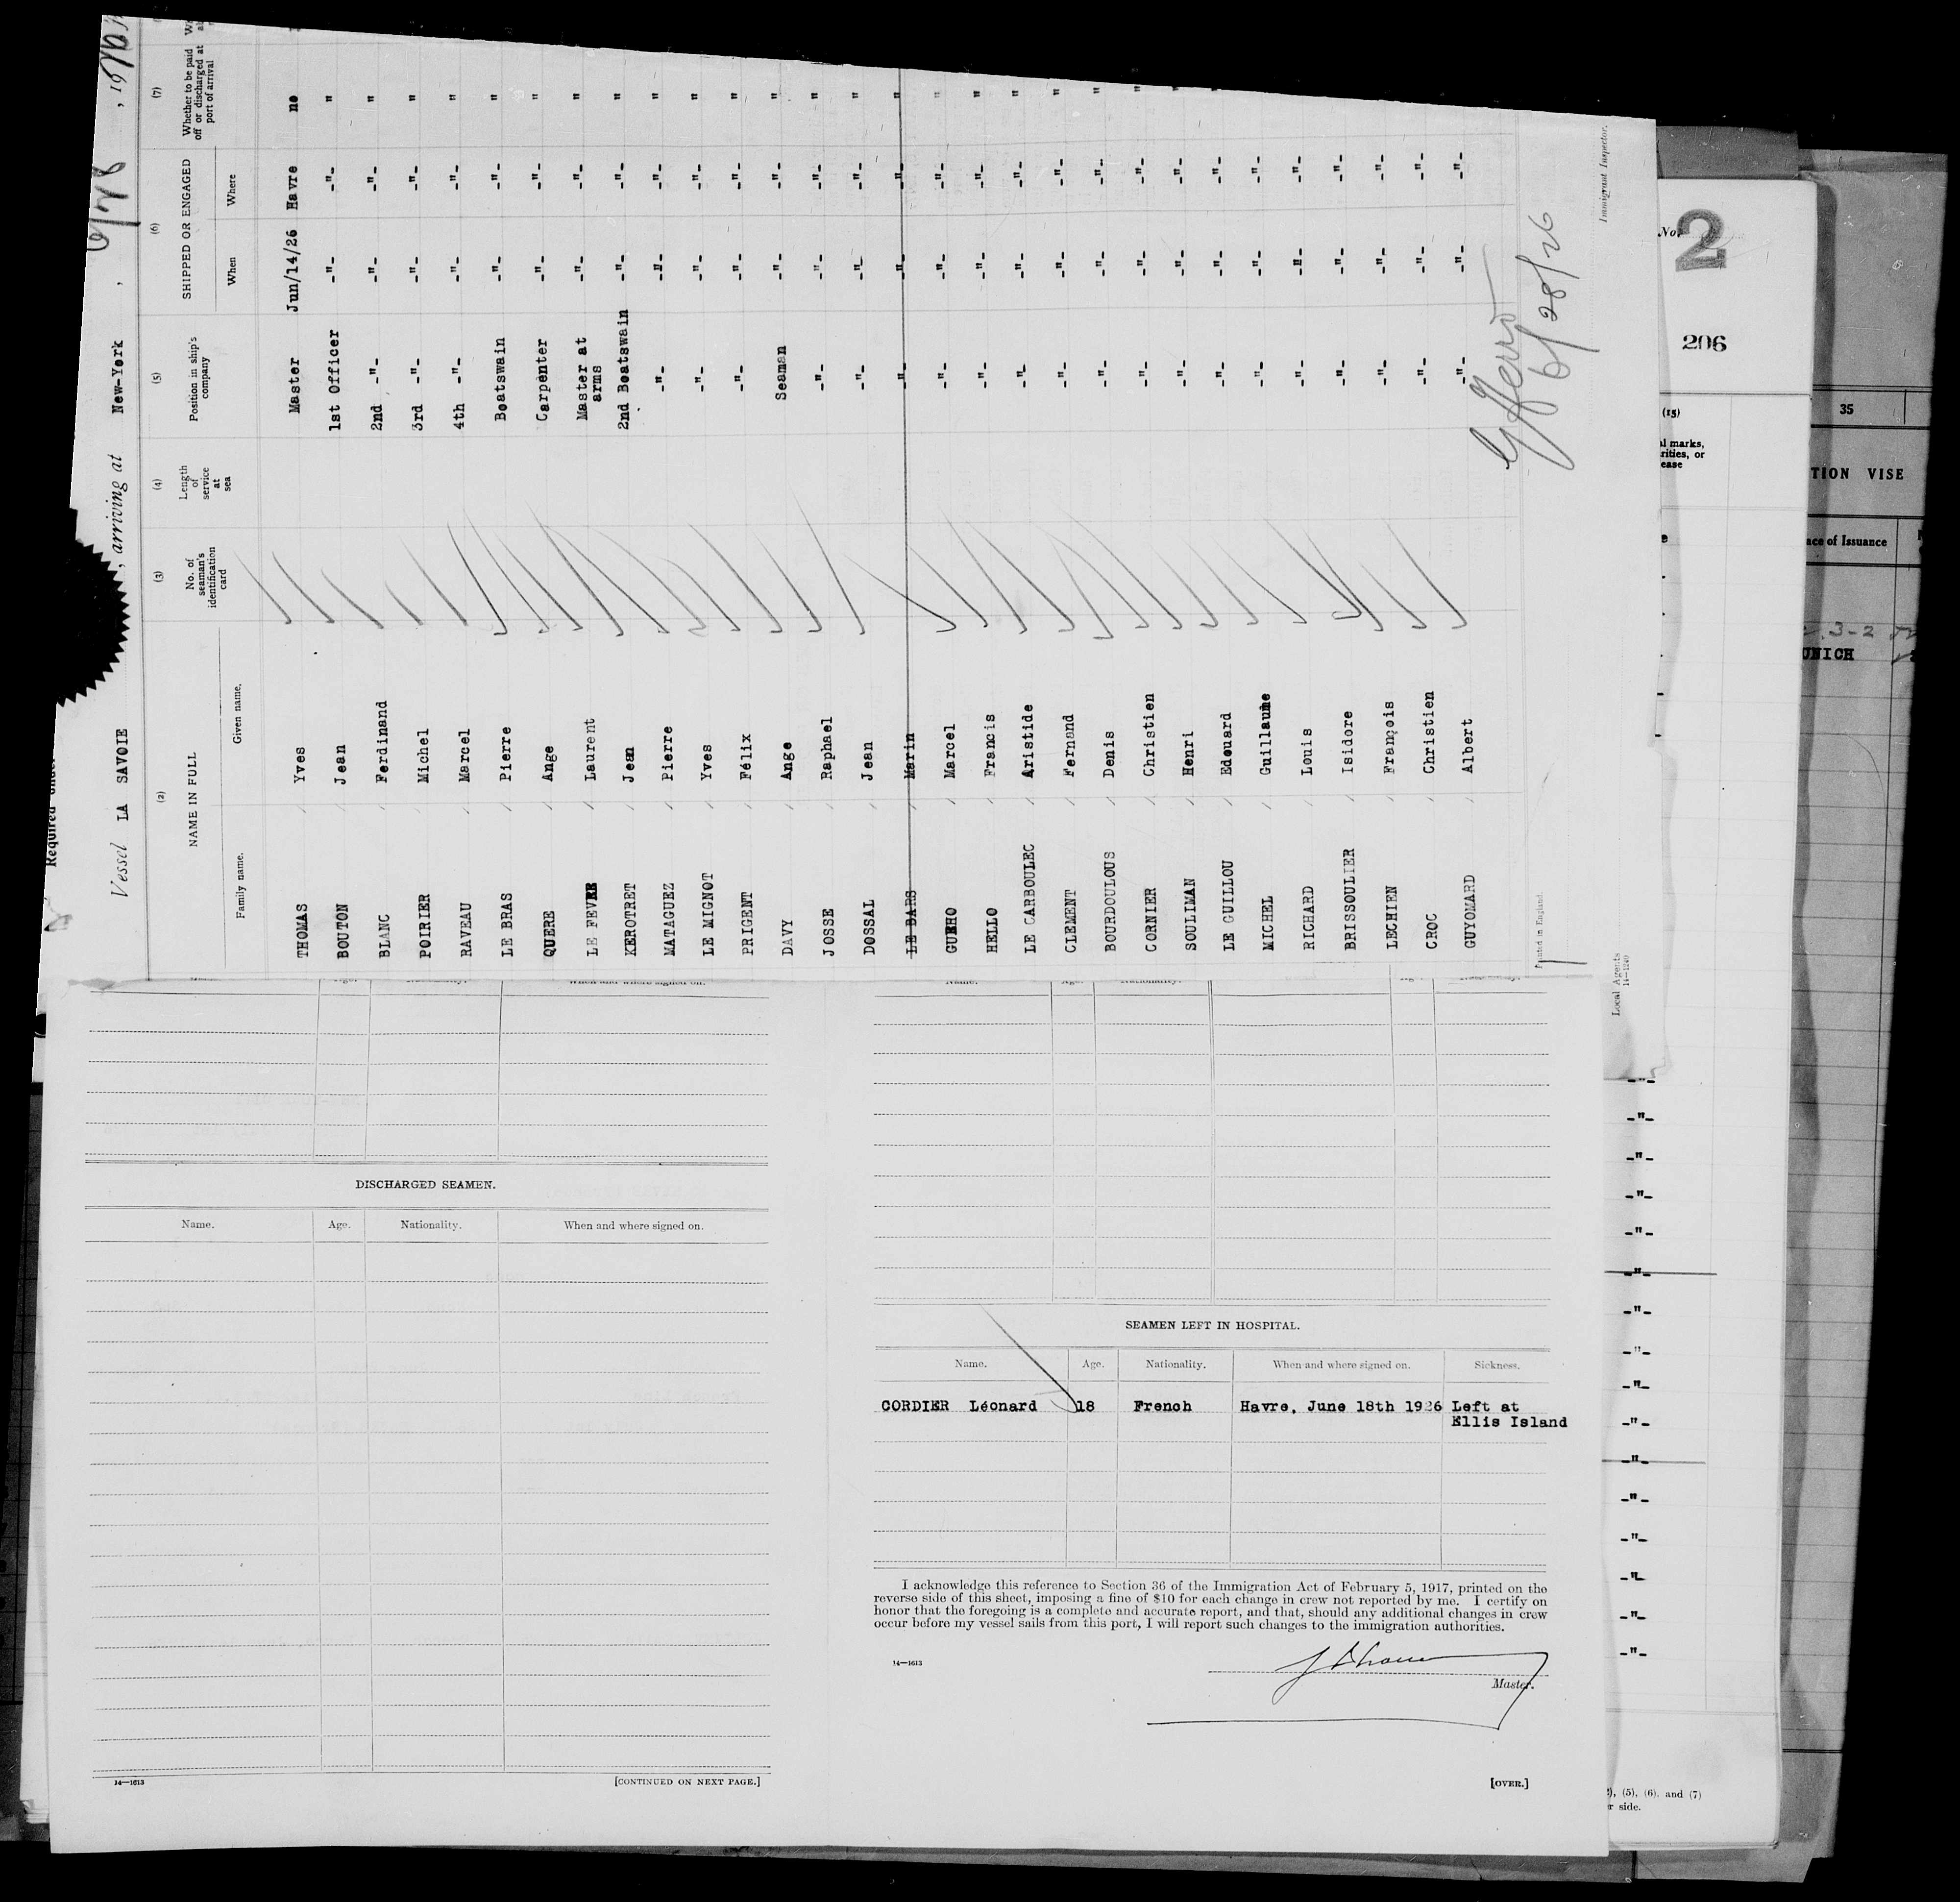 Vessel LA SAVOIE , arriving at New-York ,
(2) (3) (4) (5) (6) (7)
NAME IN FULL No. of seaman's identification card Length of service at sea Position in ship's company SHIPPED OR ENGAGED Whether to be paid off or discharged at port of arrival
Family name. Given name. When Where
THOMAS Yves Master Jun/14/26 Havre no
BOUTON Jean 1st Officer -"- -"- "
BLANC Ferdinand 2nd -"- -"- -"- "
POIRIER Michel 3rd -"- -"- -"- "
RAVEAU Marcel 4th -"- -"- -"- "
LE BRAS Pierre Boatswain -"- -"- "
QUERE Ange Carpenter -"- -"- "
LE FEVRE Laurent Master at arms -"- -"- "
KEROTRET Jean 2nd Boatswain -"- -"- "
MATAGUEZ Pierre -"- -"- -"- "
LE MIGNOT Yves -"- -"- -"- "
PRIGENT Félix -"- -"- -"- "
DAVY Ange Seaman -"- -"- "
JOSSE Raphael -"- -"- -"- "
DOSSAL Jean -"- -"- -"- "
LE BARS Marin -"- -"- -"- "
GUEHO Marcel -"- -"- -"- "
HELLO Francis -"- -"- -"- "
LE CARBOULEC Aristide -"- -"- -"- "
CLEMENT Fernand -"- -"- -"- "
BOURDOULOUS Denis -"- -"- -"- "
CORNIER Christien -"- -"- -"- "
SOULIMAN Henri -"- -"- -"- "
LE GUILLOU Edouard -"- -"- -"- "
MICHEL Guillaume -"- -"- -"-
RICHARD Louis -"- -"- -"-
BRISSOULIER Isidore -"- -"- -"-
LECHIEN François -"- -"- -"-
CROC Christien -"- -"- -"-
GUYOMARD Albert -"- -"- -"-
6/28/26
Printed in England.
Immigrant Inspector.
Local Agents
14-1240
No. 2
206
(15)
35
TION VISE
ace of Issuance
3-2
UNICH
Name. Age. Nationality. When and where signed on.
DISCHARGED SEAMEN.
Name. Age. Nationality. When and where signed on.
14—1613 [CONTINUED ON NEXT PAGE.]
Name. Age. Nationality.
SEAMEN LEFT IN HOSPITAL.
Name. Age. Nationality. When and where signed on. Sickness.
CORDIER Léonard 18 French Havre, June 18th 1926 Left at
Ellis Island
I acknowledge this reference to Section 36 of the Immigration Act of February 5, 1917, printed on the
reverse side of this sheet, imposing a fine of $10 for each change in crew not reported by me. I certify on
honor that the foregoing is a complete and accurate report, and that, should any additional changes in crew
occur before my vessel sails from this port, I will report such changes to the immigration authorities.
14—1613
Master.
[OVER.]
(5), (6). and (7)
r side.